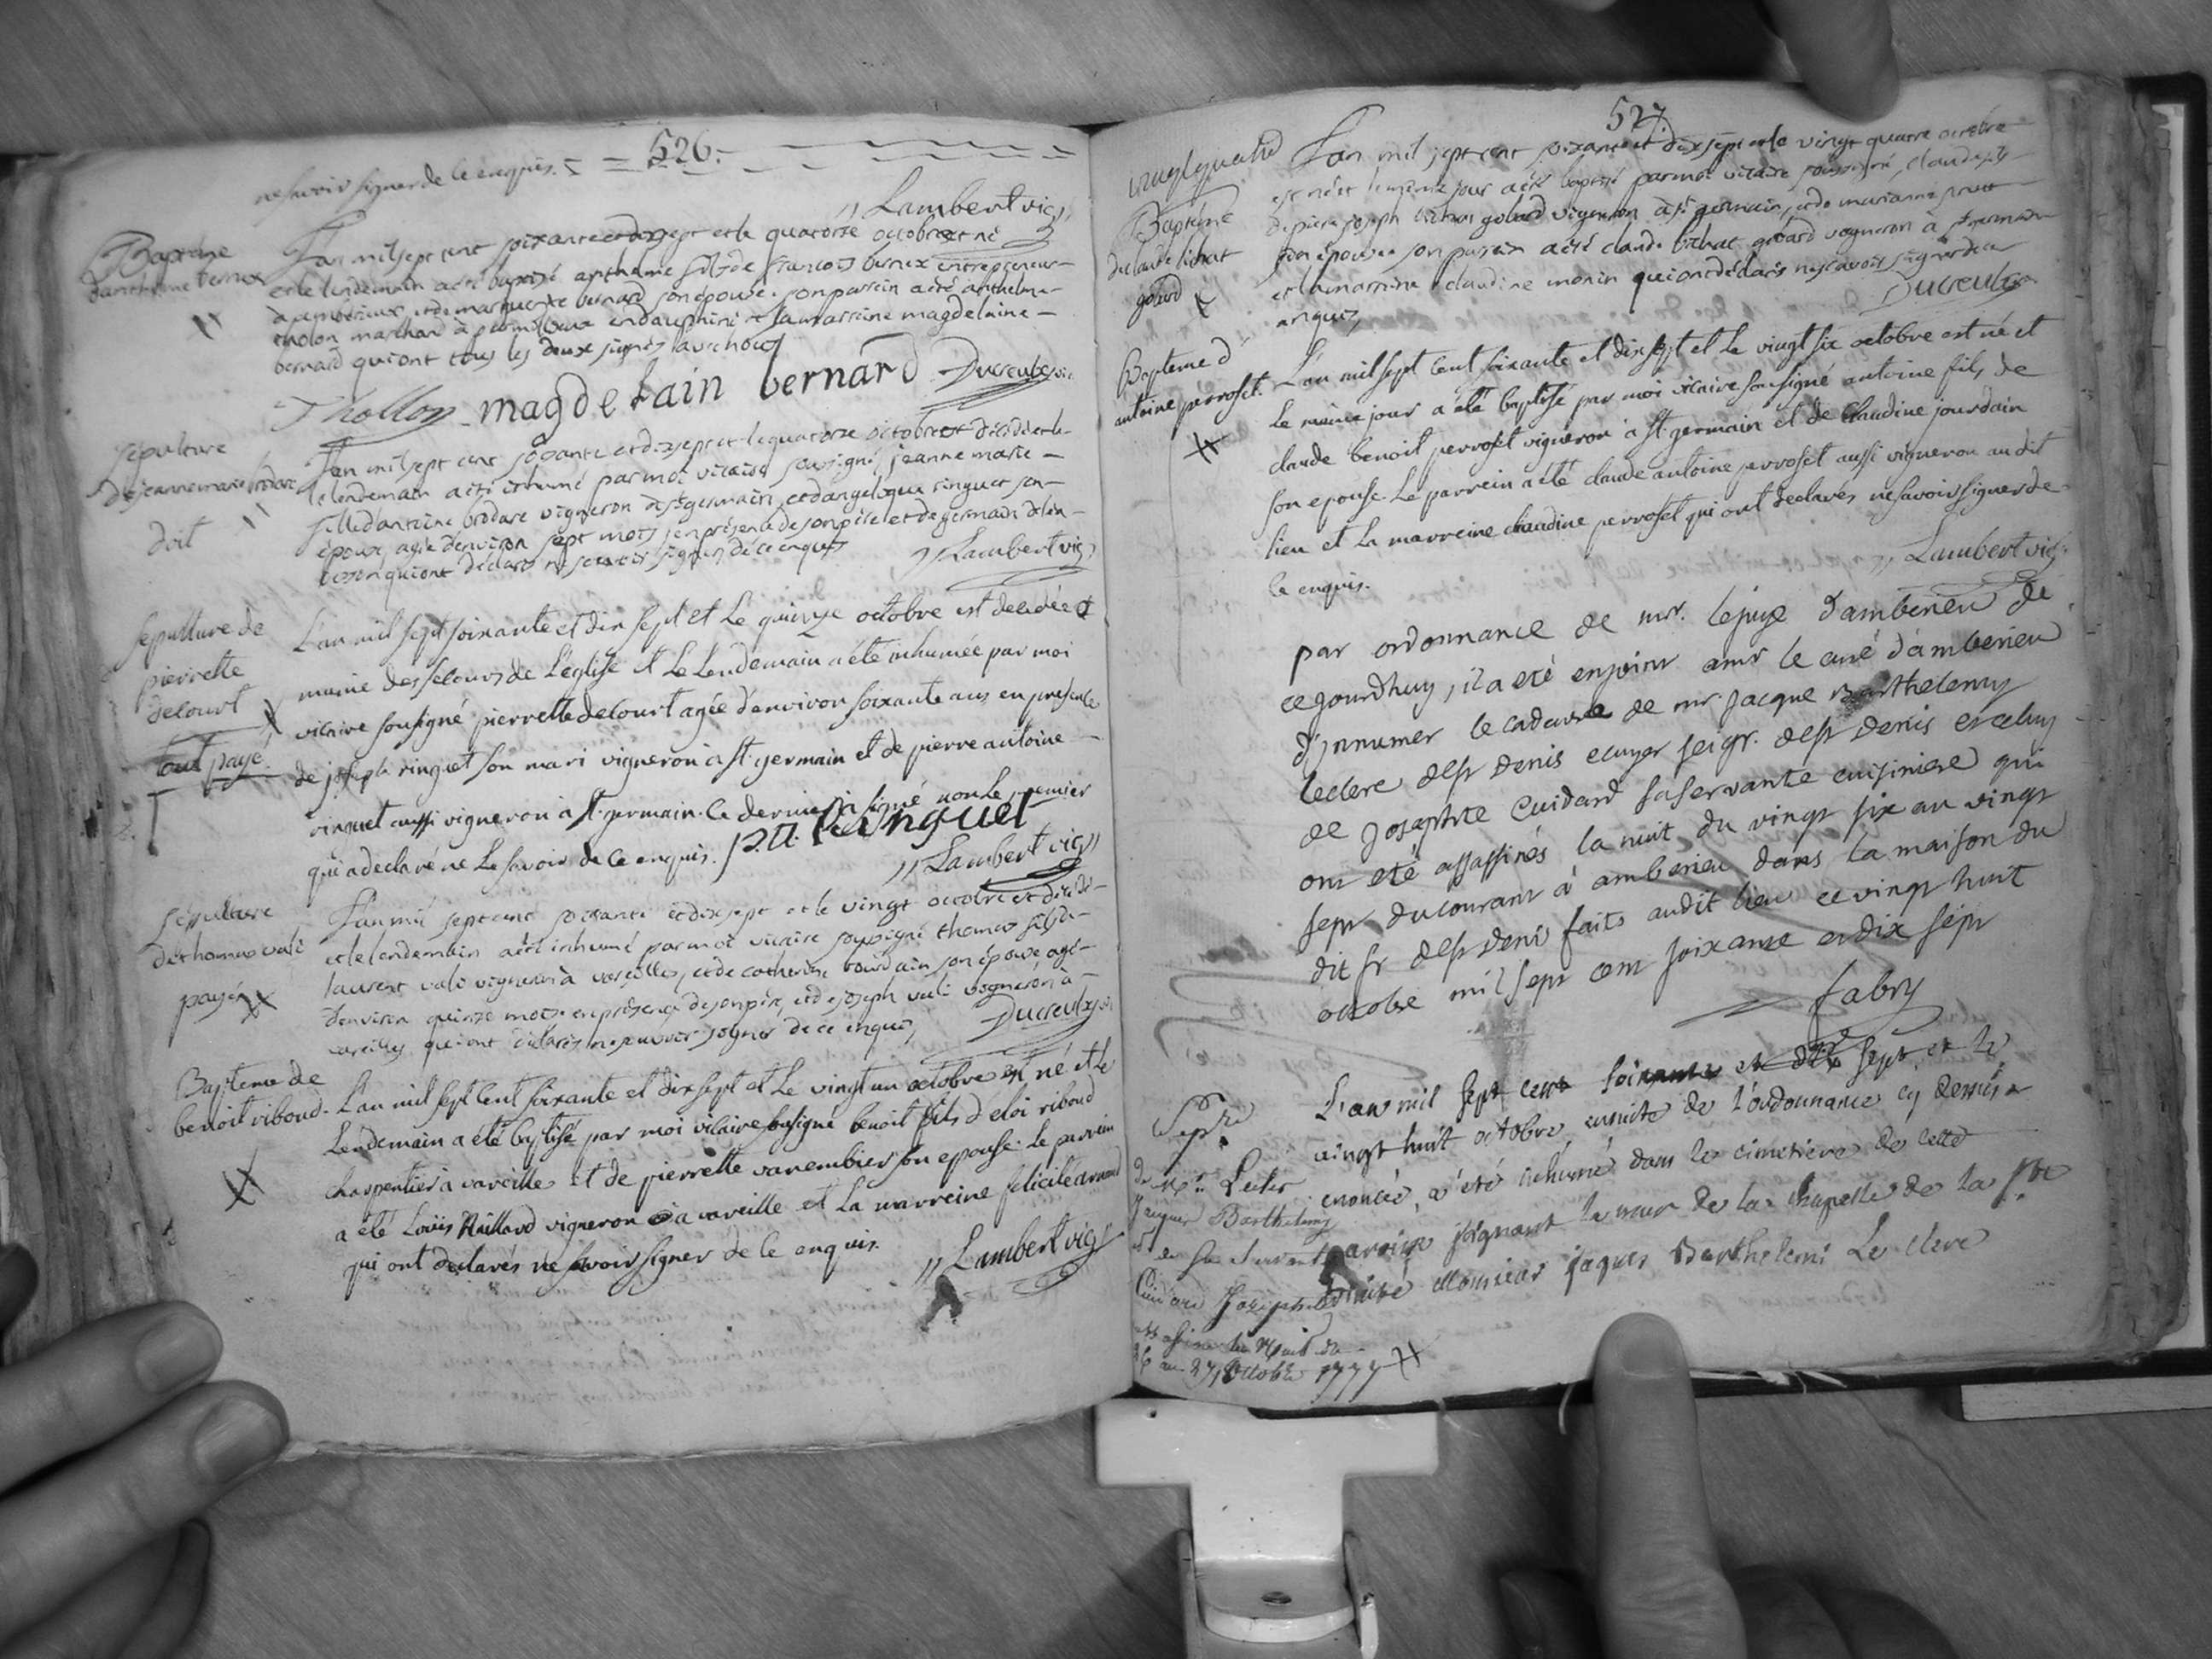 526.
ne savoir signer de ce enquis.
Lambert vic
Baptême
danthelme bernex
L'an mil sept cent soixante et dix sept et le quatorse octobre est né
et le lendemain a été baptisé anthelme fils de francois bernex entrepreneur
a amberieux, et de marguerite bernard son épouse. son parrein a été anthelme
tholon marchand à en dauphiné et sa marreine magdelaine
bernard qui ont tous les deux signés avec nous
Thollon magdelain bernard Ducreulx vic
sepulture
de jeanne marie brodare
doit
L'an mil sept cent soixante et dix sept et le quatorse octobre est décédée et le
lendemain a été inhumé par moi vicaire soussigné jeanne marie
fille d'antoine brodare vigneron de st germain, et dangelique ringuet son
épouse, agée d'environ sept mois, en présence de son père et de germain
qui ont déclarés ne scavoir signer de ce enquis
Lambert vic
sepulture de
pierrette
delourt
tout payé.
L'an mil sept soixante et dix sept et le quinze octobre est decedée et
munie des secours de l'eglise et le lendemain a été inhumée par moi
vicaire sousigné pierrette delourt agée d'environ soixante ans en presence
de joseph ringuet son mari vigneron à st germain et de pierre antoine
ringuet aussi vigneron à st germain. le dernier a signé non le premier
qui a declaré ne le savoir de ce enquis. p.a. Ringuet
Lambert vic
sépulture
de thomas vali
payé
L'an mil sept cent soixante et dix sept et le vingt octobre est décédé
et le lendemain a été inhumé par moi vicaire soussigné thomas fils de
laurent vali vigneron à vareilles, et de catherine bourdain son épouse agé
d'environ quinze mois en présence de son père, et de joseph vali vigneron à
vareilles qui ont déclarés ne scavoir signer de ce enquis
Ducreulx vic
Bapteme de
benoit riboud.
L'an mil sept cent soixante et dix sept et le vingt un octobre est né et le
lendemain a été baptisé par moi vicaire sousigné benoit fils d'eloi riboud
charpentier à vareille et de pierrette varembier son epouse. le parrein
a été Louis Maillard vigneron à vareille et la marreine felicité
qui ont declarés ne savoir signer de ce enquis.
Lambert vic
527.
vingt quatre
Baptême
de claude bichat
gobard
L'an mil sept cent soixante et dix sept et le vingt quatre octobre
est né et le même jour a été baptisé par moi vicaire soussigné, claude fils
de pierre joseph bichat gobard vigneron à st germain, et de marianne
son épouse. son parrein a été claude bichat gobard vigneron à st germain
et la marreine claudine monin qui ont déclarés ne scavoir signer de ce
enquis
Ducreulx
Bapteme d
antoine perroset.
L'an mil sept cent soixante et dix sept et le vingt six octobre est né et
le même jour a été baptisé par moi vicaire sousigné antoine fils de
claude benoit perroset vigneron à st germain et de claudine jourdain
son epouse. Le parrein a été claude antoine perroset aussi vigneron au dit
lieu et la marreine claudine perroset qui ont declarés ne savoir signer de
ce enquis.
Lambert vic
par ordonnance de mr. le juge d'amberieu de
ce jourdhuy, il a eté enjoint a mr le curé d'amberieu
d'innumer le cadavre de mr jacque Barthelemy
leclerc de st denis ecuyer seigr. de st denis et celuy
de josephte Cuidard sa servante cuisiniere qui
ont eté assassinés la nuit du vingt six au vingt
sept du courant à amberieu dans la maison du
dit sr de st denis faits audit lieu ce vingt huit
octobre mil sept cent soixante et dix sept
fabry
Sepre
de Mr. Leclerc
Jaques Barthelemy
et de sa servante
Cuidard Josephte
assassinés la Nuit du
26 au 27 8 octobre 1777
L'an mil sept cent soixante et dix sept et le
vingt huit octobre ensuite de l'ordonnance cy dessus
enoncée, a été inhumé dans le cimetière de cette
paroisse joignant le mur de la chapelle de la ste
Monsieur jaques Barthelemi Le clerc